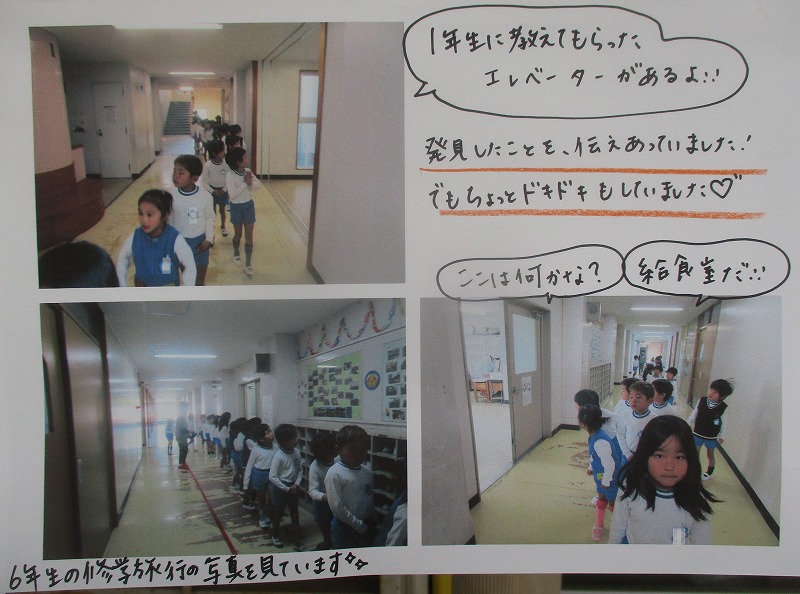 1年生に教えてもらった
エレベーターがあるよ!!
発見したことを、伝えあっていました!
でもちょっとドキドキもしていました♡
ここは何かな?
給食室だ!!
6年生の修学旅行の写真を見ています